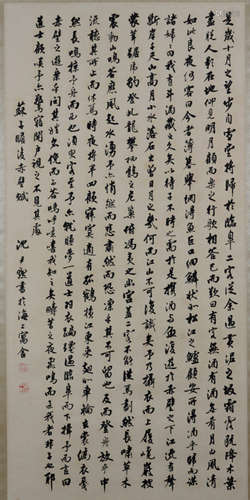 是歲十月之望步自雪堂將歸於臨皋二客從余過黃泥之坂霜露既降木葉
盡脫人影在地仰見明月顧而樂之行歌相答已而歎曰有客無酒有酒無肴月白風清
如此良夜何客曰今者薄暮舉網得魚巨口細鱗狀如松江之鱸顧安所得酒乎歸而謀
諸婦婦曰我有斗酒藏之久矣以待子不時之需於是攜酒與魚復遊於赤壁之下江流有聲
斷岸千尺山高月小水落石出曾日月之幾何而江山不可復識矣予乃攝衣而上履巉巖披
蒙茸踞虎豹登虬龍攀棲鶻之危巢俯馮夷之幽宮蓋二客不能從焉劃然長嘯草木
震動山鳴谷應風起水涌予亦悄然而悲肅然而恐凜乎其不可留也反而登舟放乎中
流聽其所止而休焉時夜將半四顧寂寥適有孤鶴橫江東來翅如車輪玄裳縞衣戛
然長鳴掠予舟而西也須臾客去予亦就睡夢一道士羽衣蹁躚過臨皋之下揖予而言曰
赤壁之遊樂乎問其姓名俛而不答嗚呼噫嘻我知之矣疇昔之夜飛鳴而過我者非子也耶
道士顧笑予亦驚寤開戶視之不見其處
蘇子瞻後赤壁賦
沈尹默書於海上寓舍